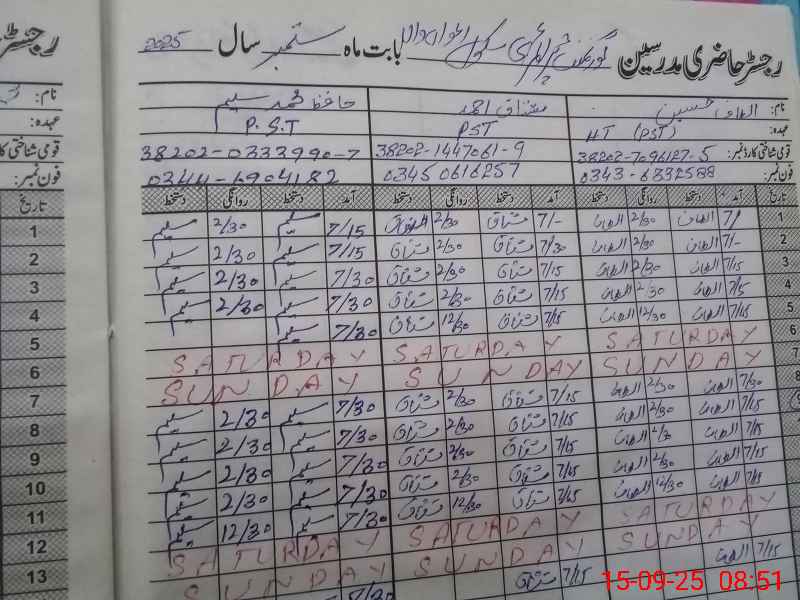 رجسٹر حاضری مدرسین گورنمنٹ پرائمری سکول بابت ماہ ستمبر سال 2025
نام: الطاف حسین مشتاق احمد حافظ محمد سلیم
عہدہ: HT (PST) PST P.S.T
قومی شناختی کارڈ نمبر: 38202-7096127-5 38202-1447061-9 38202-0333990-7
فون نمبر: 0343-6832588 0345 0616257 0344-6904182
تاریخ آمد دستخط روانگی دستخط آمد دستخط روانگی دستخط آمد دستخط روانگی دستخط
1 7/ الطاف 2/30 الطاف 7/- مشتاق 2/30 مشتاق 7/15 سلیم 2/30 سلیم
2 7/- الطاف 2/30 الطاف 7/30 مشتاق 2/30 مشتاق 7/15 سلیم 2/30 سلیم
3 7/15 الطاف 2/30 الطاف 7/15 مشتاق 2/30 مشتاق 7/30 سلیم 2/30 سلیم
4 7/15 الطاف 2/30 الطاف 7/15 مشتاق 2/30 مشتاق 7/30 سلیم 2/30 سلیم
5 7/15 الطاف 12/30 الطاف 7/15 مشتاق 12/30 مشتاق 7/30 سلیم
6 SATURDAY SATURDAY SATURDAY
7 SUNDAY SUNDAY SUNDAY
8 7/30 الطاف 2/30 الطاف 7/15 مشتاق 2/30 مشتاق 7/30 سلیم 2/30 سلیم
9 7/15 الطاف 2/30 الطاف 7/15 مشتاق 2/30 مشتاق 7/30 سلیم 2/30 سلیم
10 7/15 الطاف الطاف 7/15 مشتاق 2/30 مشتاق 7/30 سلیم 2/30 سلیم
11 7/15 الطاف 2/30 الطاف 7/15 مشتاق 2/30 مشتاق 7/30 سلیم 2/30 سلیم
12 7/15 الطاف 12/30 الطاف 7/15 مشتاق 12/30 مشتاق 7/30 سلیم 12/30 سلیم
13 SATURDAY SATURDAY SATURDAY
SUNDAY SUNDAY SUNDAY
7/15 الطاف 7/15 مشتاق 7/30
15-09-25 08:51